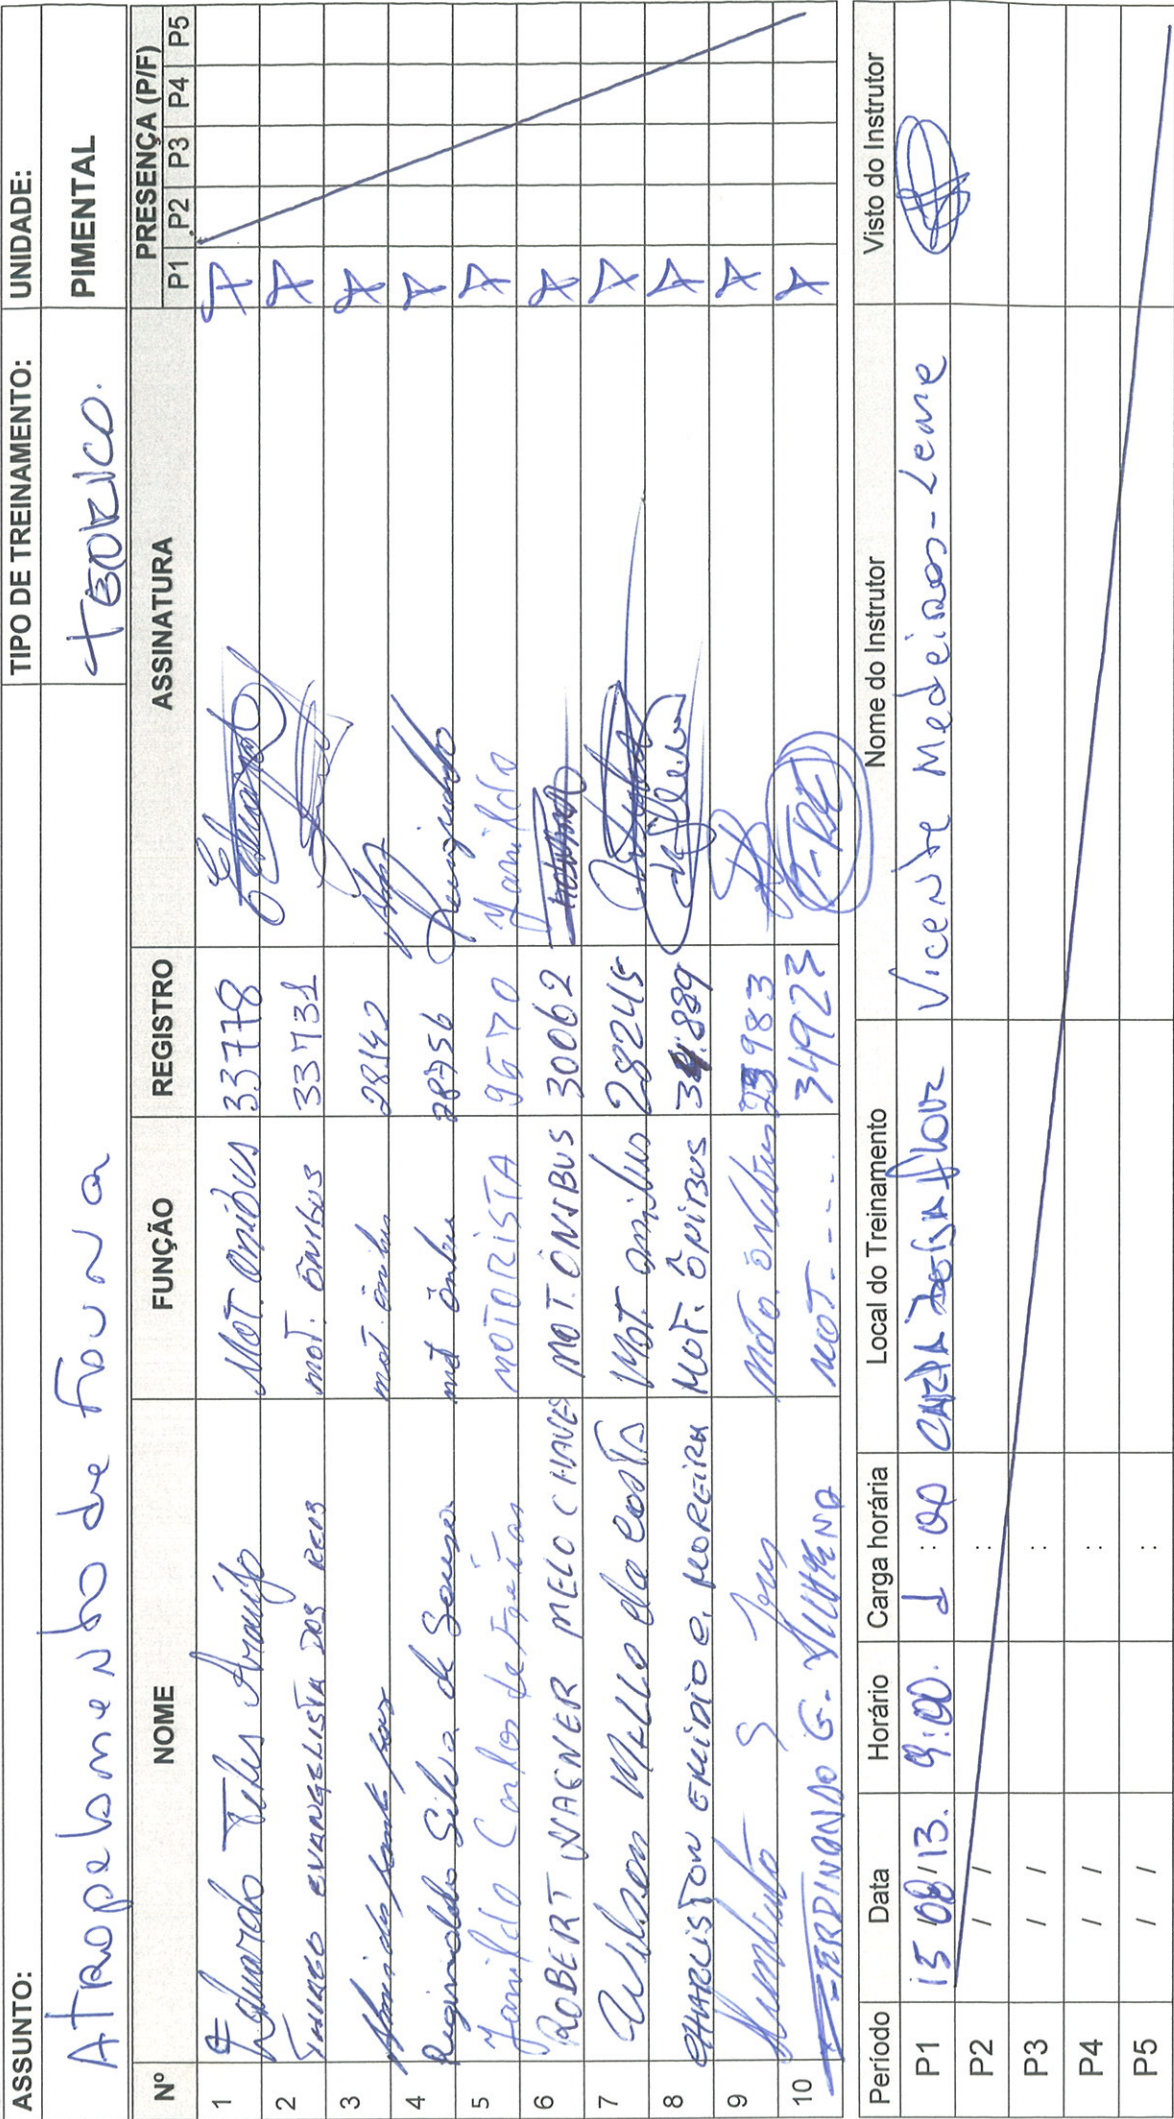 ASSUNTO: TIPO DE TREINAMENTO: UNIDADE:
Atropelamento de Fauna TEORICO. PIMENTAL
Nº NOME FUNÇÃO REGISTRO ASSINATURA PRESENÇA (P/F)
P1 P2 P3 P4 P5
1 Eduardo Teles Araújo MOT. Onibus 33778 Eduardo
2 EVANGELISTA DOS REIS MOT. ÔNIBUS 33731
3 mot. ônibus 28142
4 Reginaldo Silva de Souza mot ônibus 28756 Reginaldo
5 Janildo Carlos de Freitas MOTORISTA 9670 Janildo
6 ROBERT WAGNER MELO CHAVES MOT. ÔNIBUS 30062
7 Wilson Mello da Costa Mot. onibus 28245
8 CHARLISTON EMIDIO C. MOREIRA MOT. ÔNIBUS 34.889
9 Humberto S MOTO. ÔNIBUS 23983
10 FERDINANDO G. MOT - - - - 34923
Período Data Horário Carga horária Local do Treinamento Nome do Instrutor Visto do Instrutor
P1 15/08/13. 9:00. 1:00 Vicente Medeiros - Leme
P2 / / :
P3 / / :
P4 / / :
P5 / / :